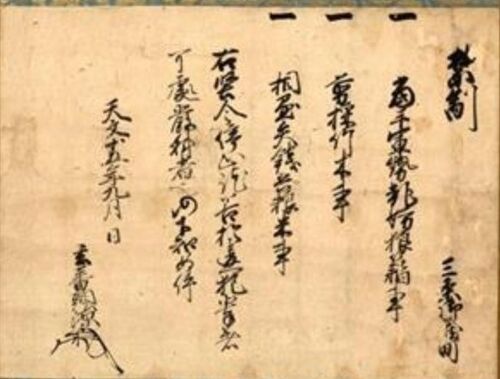 禁制　三条御蔵町
一 当手軍勢乱妨狼藉事
一 剪採竹木事
一 相懸矢銭兵粮米事
右堅令停止訖若於違犯輩者
可処厳科者也仍下知如件
天文十五年九月 日
玄蕃頭源